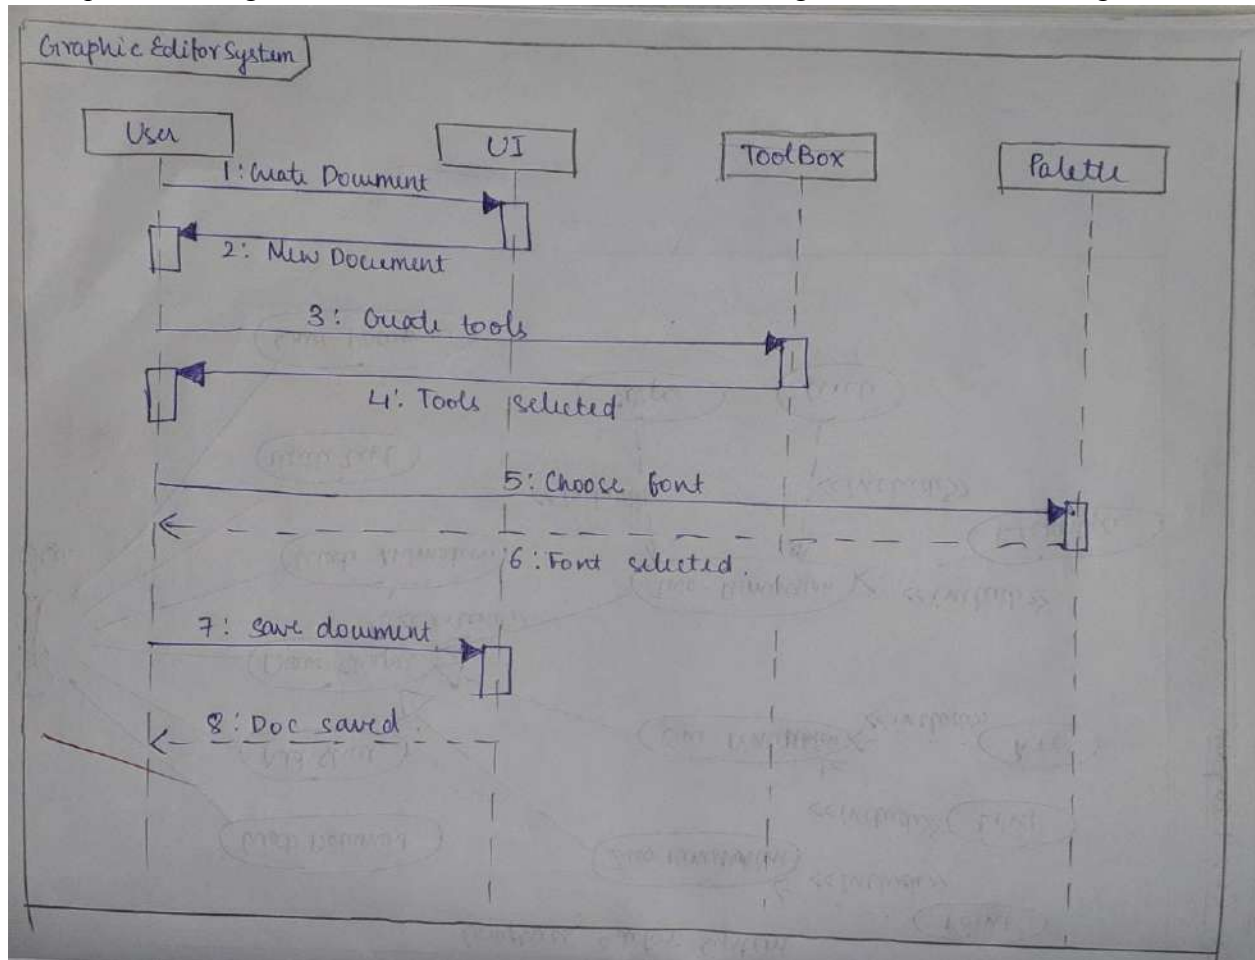 Graphic Editor System
User
UI
ToolBox
Palette
1: Create Document
2: New Document
3: Create tools
4: Tools selected
5: Choose font
6: Font selected.
7: Save document
8: Doc saved.